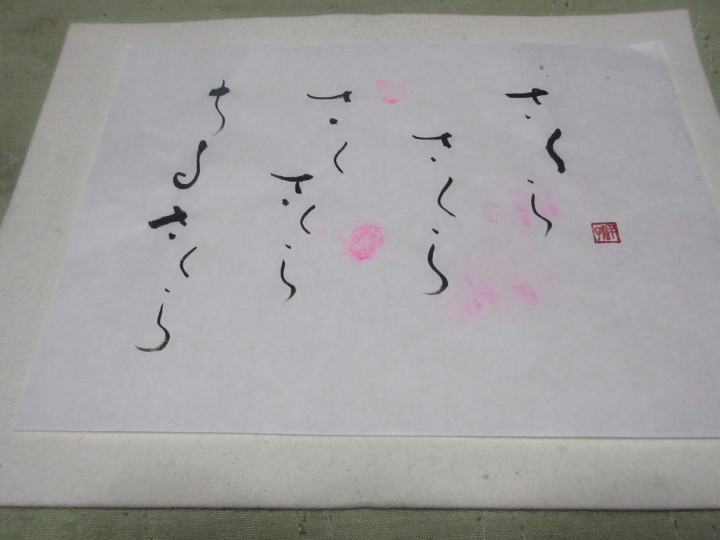 さくら
さくら
さく
さくら
ちるさくら